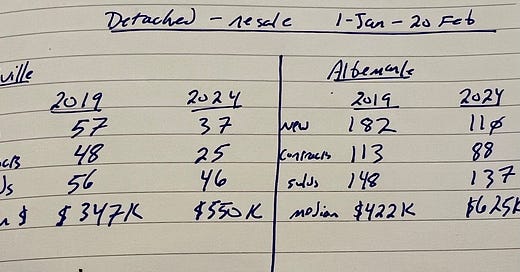 Detached - resale 1-Jan - 20 Feb
ville Albemarle
2019 2024 2019 2024
57 37 new 182 110
cts 48 25 contracts 113 88
ds 56 46 solds 148 137
n $ $347K $550K median $422K $625K